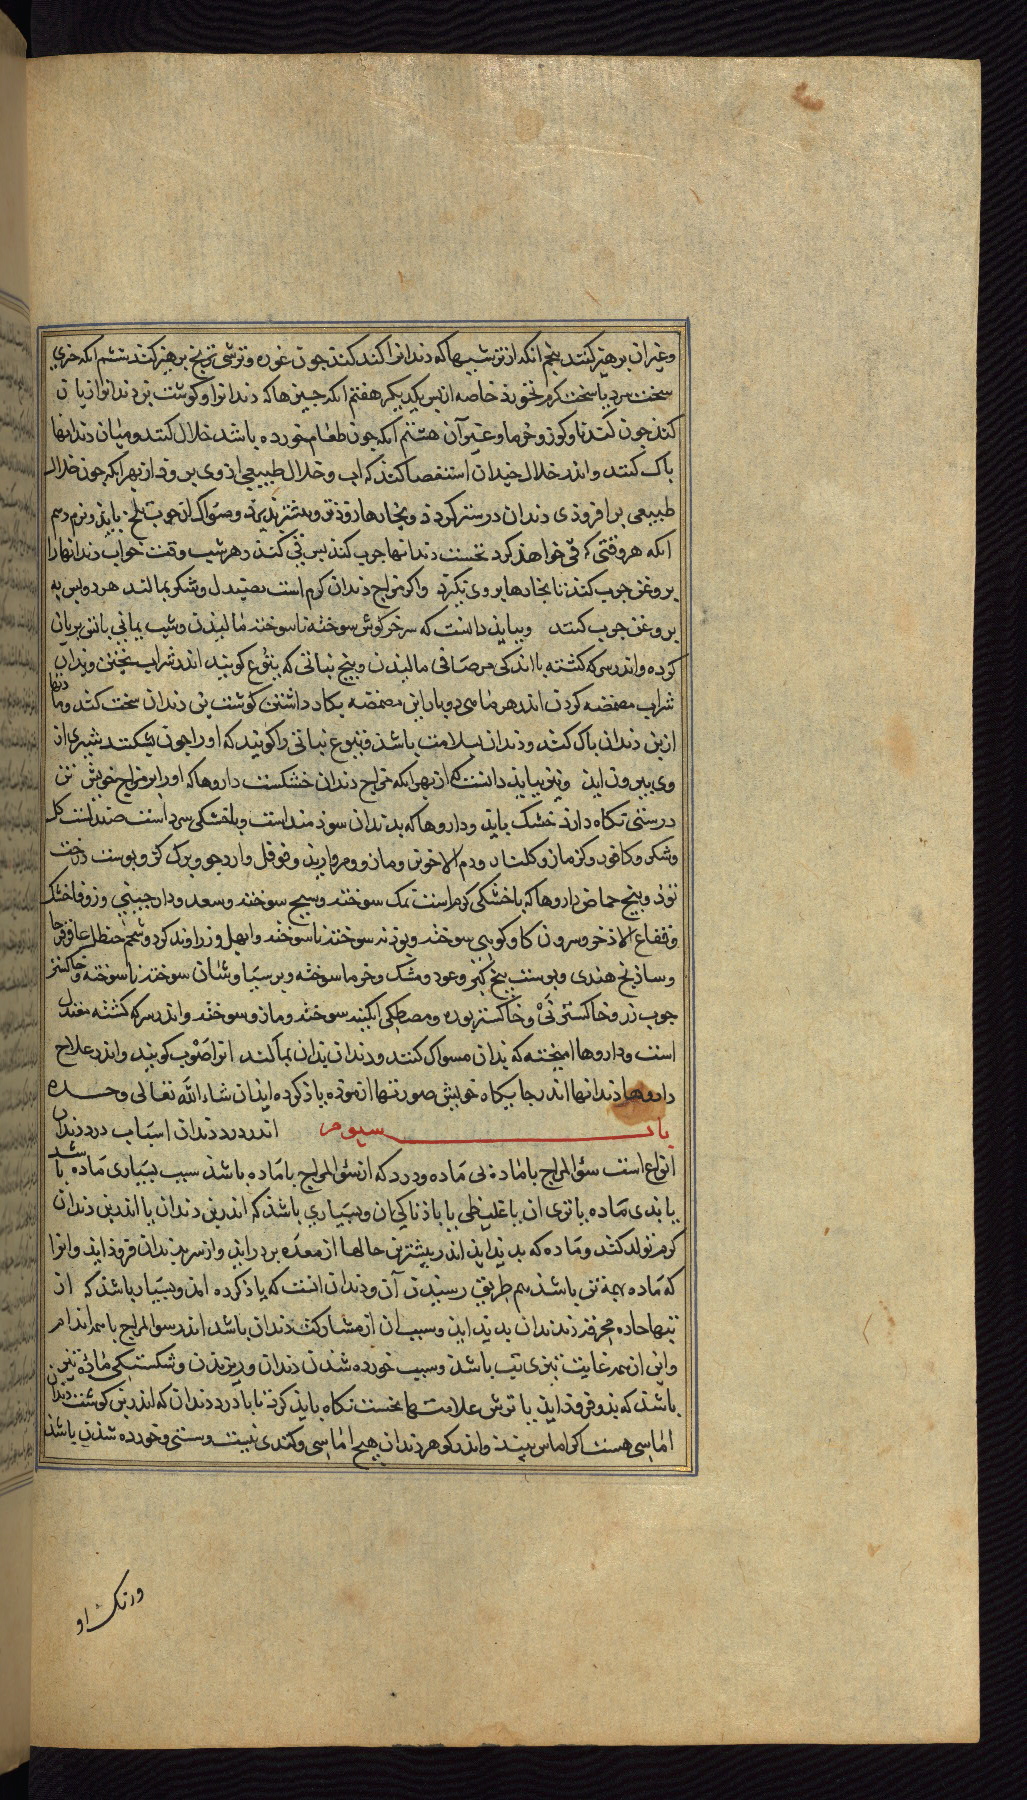 وغیران برهیز کنند بنجم انکه از ترشیها که دندانرا کند کند جون غوره و ترشی ترنج برهیز کند ششم انکه جیزی
سخت سرد یا سخت کرم نخورد خاصه از بس یکدیکر هفتم انکه جیزها که دندانرا و کوشت بن دندانرا زیان
کند جون کندنا و کوز و خرما و غیر آن هشتم انکه جون طعام خورده باشد خلال کنند و میان دندانها
باک کنند و اندر خلال جندان استقصا کنند که اب و خلال طبیعی از وی برود از بهر انکه جون خلال
طبیعی برافروزی دندان درستر کردد و بخارها زودتر و بیشتر بذیرد و مسواک از جوب تلخ باید و نرم دهم
انکه هر وقتی که قی خواهد کرد نخست دندانها جرب کند بس قی کند و هر شب وقت خواب دندانها را
بروغن جرب کند تا بخارها بر وی نکیرد و اکر مزاج دندان کرم است بصندل و شکر بمالند هر دو بس به
بروغن جرب کنند و ببایذ دانست که سر خرکوش سوخته ناسوخته مالیدن و شب یمانی باتش بریان
کرده و اندر سرکه کشته با اندکی مر صافی مالیدن و بیخ نباتی که یتوع کویند اندر شراب بختن و بدان
شراب مضمضه کردن اندر هر ماهی دو بار این مضمضه بکار داشتن کوشت بن دندان سخت کند و مادتها
از بن دندان باک کند و دندان بسلامت باشذ و یتوع نباتی را کویند که او را جون بشکنند شیری از
وی بیرون اید و نیز ببایذ دانست که از بهر انکه مزاج دندان خشکست داروها که او را بر مزاج خویش تن
درستی نکاه دارد خشک باید و داروها که بدندان سوذمند است و باخشکی سرد است صندلست کل
و شکر و کافور و کزمازو کلنار و دم الاخوین و مازو و مروارید و فوفل و ارد جو و برک کز و بوست درخت
توذ و بیخ حماض داروها که با خشکی کرم است نمک سوخته و سیح سوخته و سعد و دارجینی و زوفا خشک
و فقاع الاذخر و سرون کاو کوهی سوخته و بودنه سوخته ناسوخته و ابهل و زراوند کرد و شحم حنظل عاقرقرحا
و ساذج هندی و بوست بیخ کبر و عود و مشک و خرما سوخته و برسیاوشان سوخته ناسوخته و خاکستر
جوب رز و خاکستر نی و خاکستر بوره و مصطکی ابکینه سوخته و مازو سوخته و اندر سرکه کشته معتدل
است و داروها امیخته که بدان مسواک کنند و دندان بدان بمالند انرا صوب کویند و اندر علاج
داروها دندانها اندر جایکاه خویش صورتها ازموده یاذ کرده ایذ ان شاء الله تعالی وحده
باب سیوم اندر درد دندان اسباب درد دندان
انواع است سؤ المزاج با ماده بی ماده و درد که از سؤ المزاج با ماده باشذ سبب بسیاری ماده باشد
یا بدی ماده یا تری ان یا غلیظی یا باذناکی ان و بسیاری باشذ که اندر بن دندان یا اندر بن دندان
کرم تولد کند و ماده که بدندان اید اندر بیشترین حالها از معده بر اید و از سر بدندان فروذ اید و انرا
که ماده بهمه تن باشذ هم طریق رسیدن آن دندان انست که یاذ کرده امد و بسیار باشذ که از
تبهاء حاده محرقه درد دندان بدید اید و سبب ان از مشارکت دندان باشد اندر سؤ المزاج با همه اندام
و این از بهر غایت تیزی تب باشذ و سبب خورده شدن دندان و ریزیدن و شکستکی ماده تیز
باشذ که بذو فروذ اید یا ترش علامتها نخست نکاه باید کرد تا با درد دندان که اندر بن کوشت دندان
اماسی هست اکر اماس نبیند و اندر کوهر دندان هیج اماسی و کندی نیست و سستی و خورده شدن باشد
و رنک او